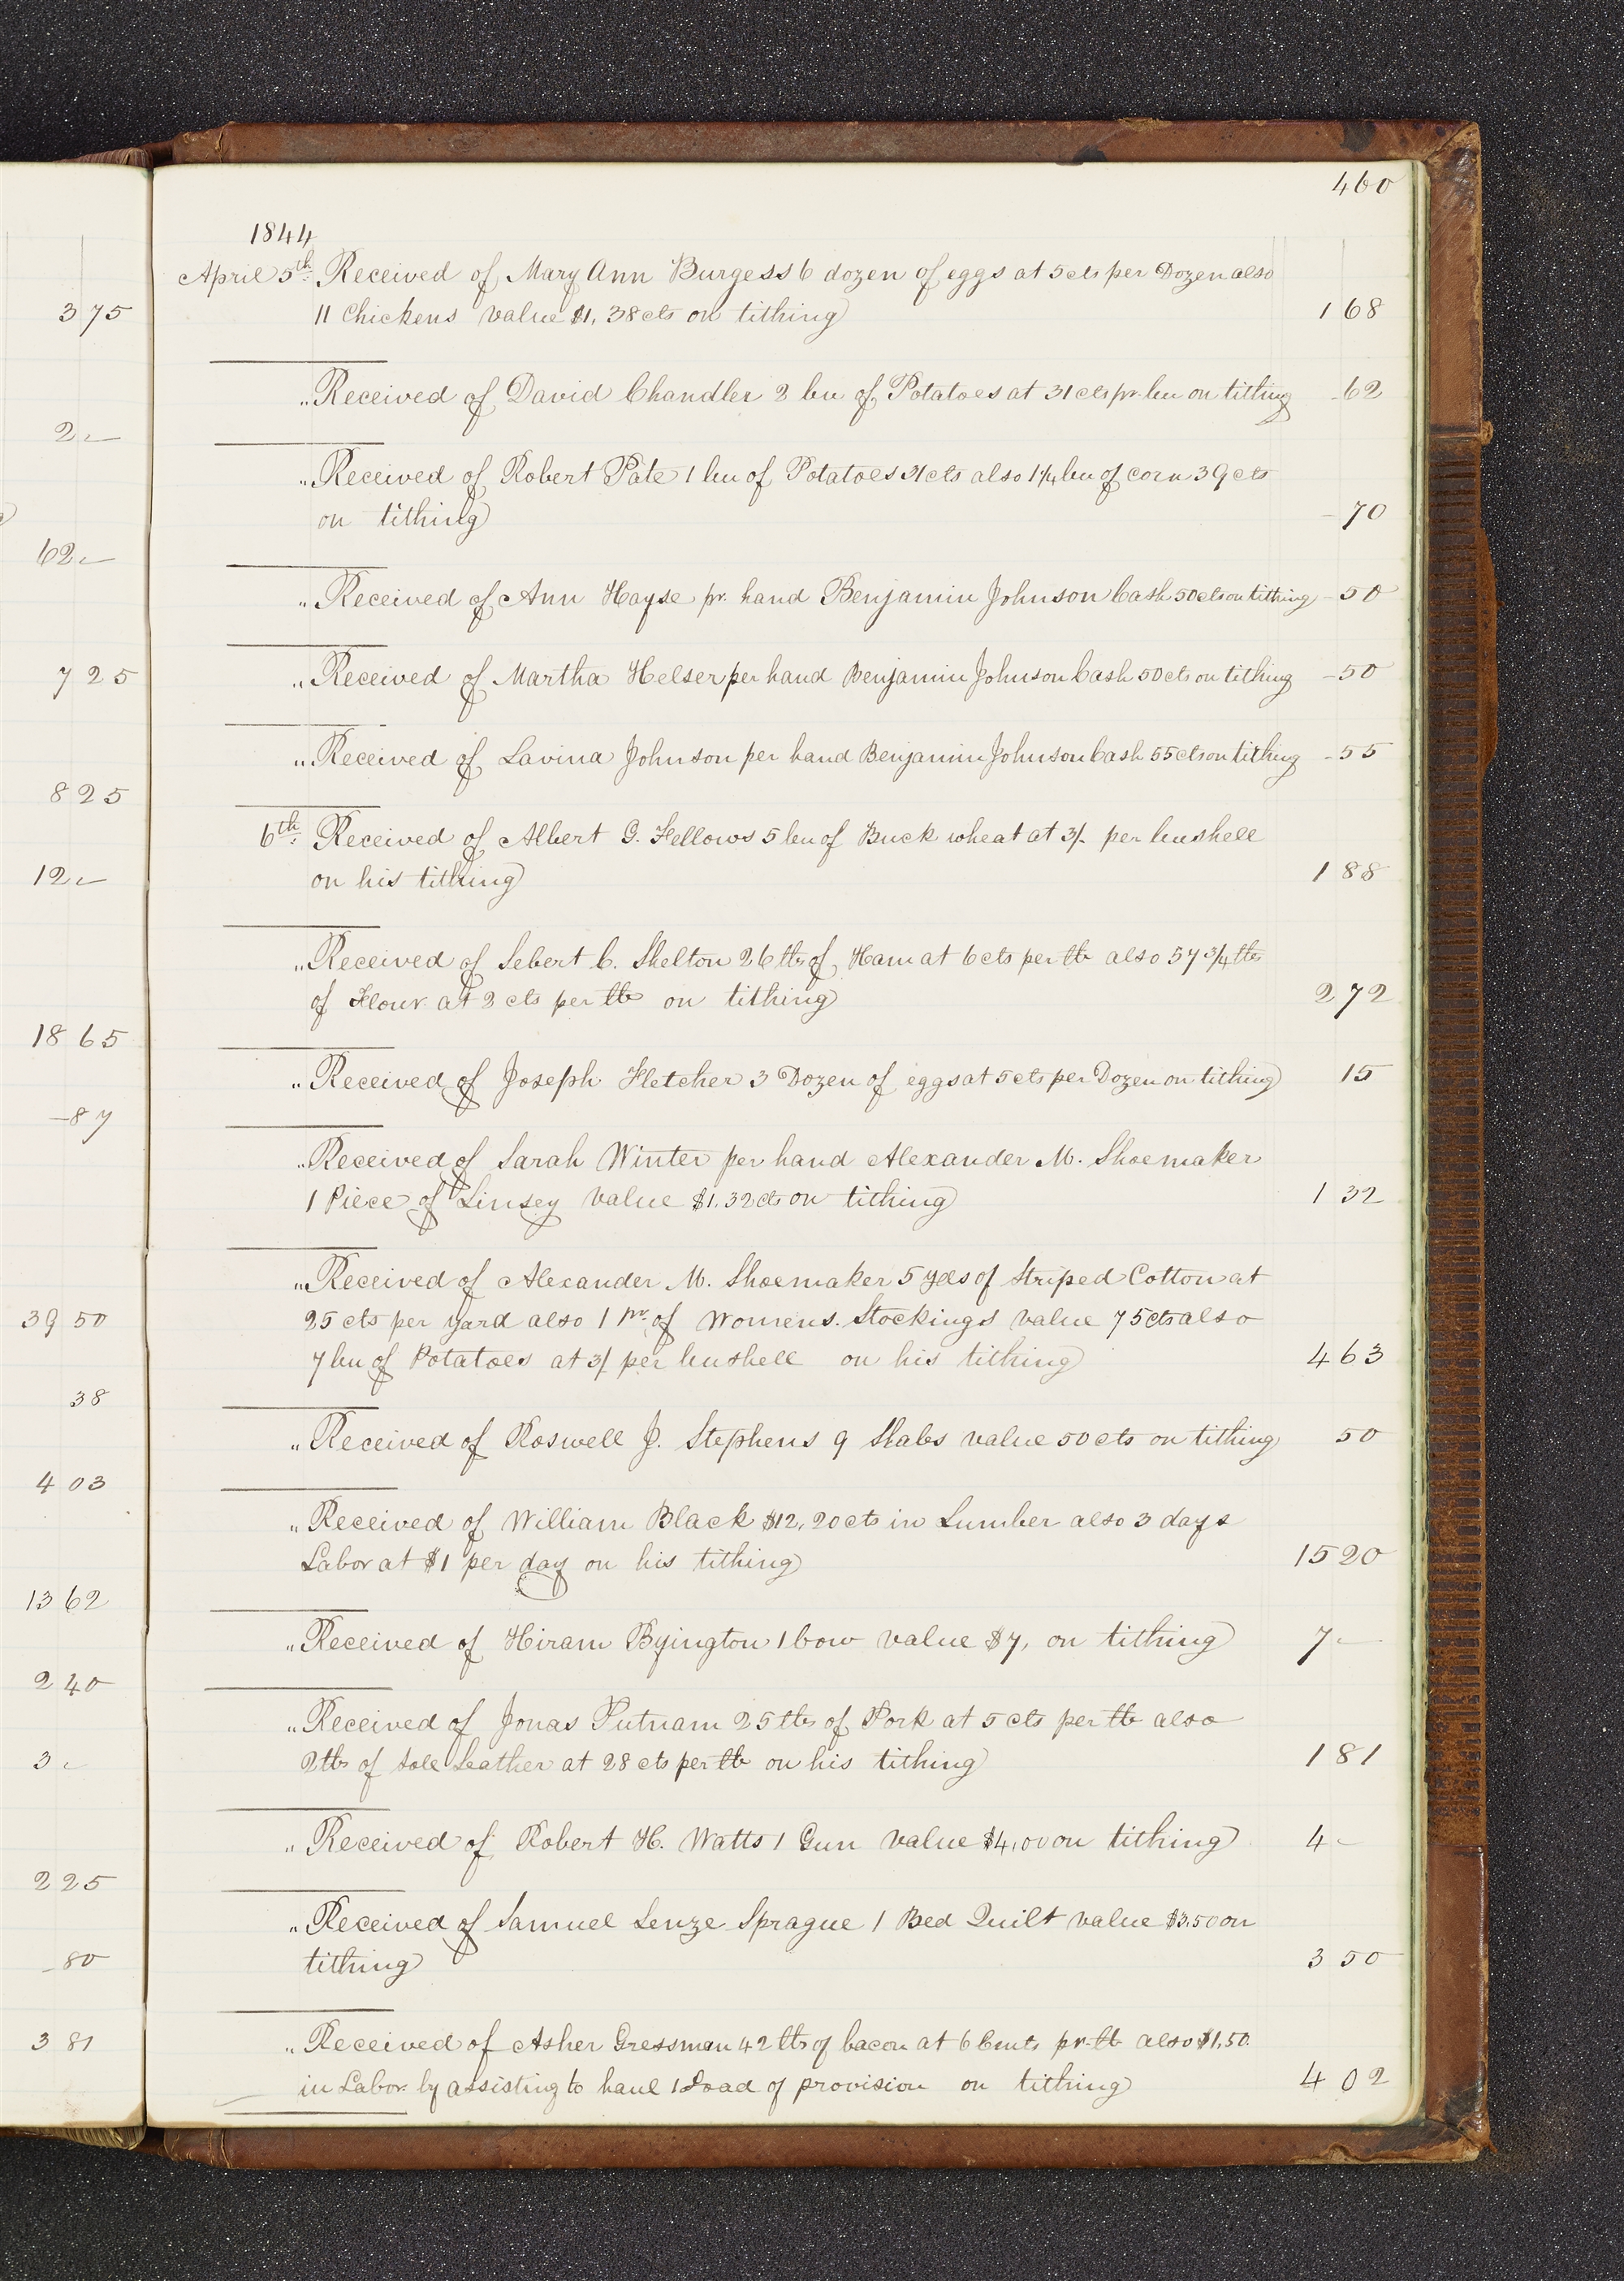 460
1844
April 5th Received of Mary Ann Burgess 6 dozen of eggs at 5 cts per Dozen also
11 Chickens value $1,38 cts on tithing 1 68
" Received of David Chandler 2 bu of Potatoes at 31 cts pr bu on tithing - 62
" Received of Robert Pate 1 bu of Potatoes 31 cts also 1 1/4 bu of corn 39 cts
on tithing - 70
" Received of Ann Hayse pr. hand Benjamin Johnson Cash 50 cts on tithing - 50
" Received of Martha Helser per hand Benjamin Johnson Cash 50 cts on tithing - 50
" Received of Lavina Johnson per hand Benjamin Johnson Cash 55 cts on tithing - 55
6th Received of Albert G. Fellows 5 bu of Buck wheat at 3/- per bushell
on his tithing 1 88
" Received of Sebert C. Shelton 26 lbs of Ham at 6 cts per lb also 57 3/4 lbs
of Flour at 2 cts per lb on tithing 2 72
" Received of Joseph Fletcher 3 Dozen of eggs at 5 cts per Dozen on tithing 15
" Received of Sarah Winter per hand Alexander M. Shoemaker
1 Piece of Linsey value $1,32 cts on tithing 1 32
" Received of Alexander M. Shoemaker 5 yds of Striped Cotton at
25 cts per yard also 1 pr of Womens Stockings value 75 cts also
7 bu of Potatoes at 3/ per bushell on his tithing 4 63
" Received of Roswell J. Stephens 9 Slabs value 50 cts on tithing 50
" Received of William Black $12,20 cts in Lumber also 3 days
Labor at $1 per day on his tithing 15 20
" Received of Hiram Byington 1 Cow value $7, on tithing 7 -
" Received of Jonas Putnam 25 lbs of Pork at 5 cts per lb also
2 lbs of sole Leather at 28 cts per lb on his tithing 1 81
" Received of Robert H. Watts 1 Gun value $4,00 on tithing 4 -
" Received of Samuel Lenze Sprague 1 Bed Quilt value $3,50 on
tithing 3 50
" Received of Asher Gressman 42 lbs of bacon at 6 Cents pr lb also $1,50
in Labor by assisting to haul 1 Load of provision on tithing 4 02
3 75
2 -
62 -
7 25
8 25
12 -
18 65
- 87
39 50
38
4 03
13 62
2 40
3 -
2 25
- 80
3 81